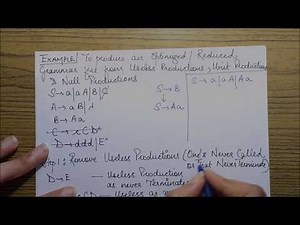 Example/ To produce an Optimized / Reduced
Grammar get from Useless Productions, Unit Productions
& Null Productions
S → a | aA | B | C
A → aB | λ
B → Aa
C → cCD
D → ddd | E
S → B
S → Aa
S → a | aA | Aa
1: Remove Useless Productions (One's Never Called
or That Never Terminate)
D → E — Useless Production
as never Terminates
CD — Useless as n